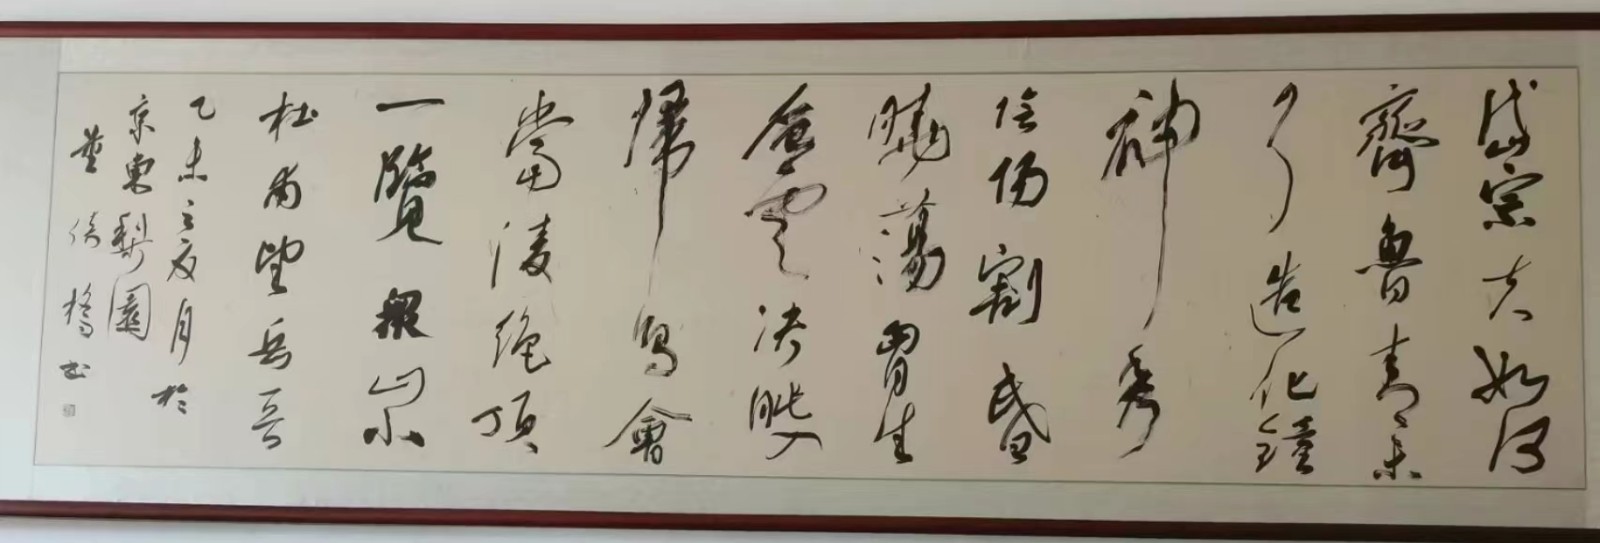 岱宗夫如何
齊魯青未
了造化鐘
神秀
陰陽割昏
曉蕩胷生
層雲决眦入
歸鳥會
當凌絕頂
一覽衆山小
杜甫望岳一首
乙未之夏月於
京東梨園
董 橋書